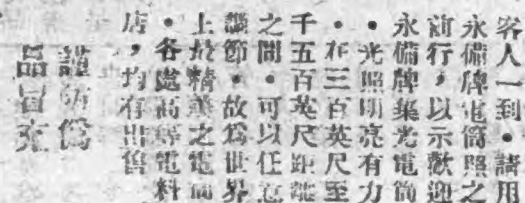 客人一到・請用
永備牌電筒照之
前行，以示歡迎
永備牌聚光電筒
・光照明亮有力
・在三百英尺至
千五百英尺距離
之間・可以任意
調節・故為世界
上最精美之電筒
・各處高等電料
店，均有出售
謹防偽
品冒充